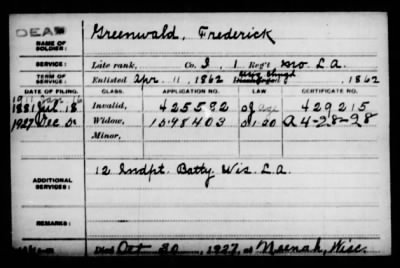 DEAD
Greenwald, Frederick
NAME OF SOLDIER:
SERVICE: Late rank, Co. I, 1 Reg't Mo L.A.
TERM OF SERVICE: Enlisted Apr. 11, 1862 , 1862
DATE OF FILING. CLASS. APPLICATION NO. LAW CERTIFICATE NO.
1881 Jul 18 Invalid, 425582 of 429215
1927 Dec Widow, 1598403 A 4-28-28
Minor,
ADDITIONAL SERVICES: 12 Indpt. Batty Wis. L.A.
REMARKS:
Died Oct 30, 1927, at Neenah, Wisc.